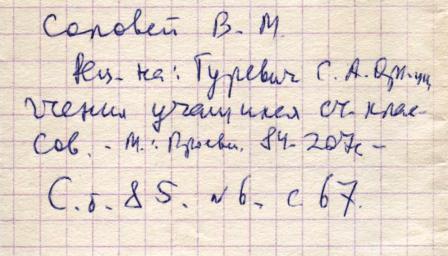 Соловей В. М.
Рец. на: Гуревич С. А. Орг-ция
чтения учащихся ст. клас-
сов. - М.: Просвещ. 84 - 207с -
С. б. 85. №6. с 67.